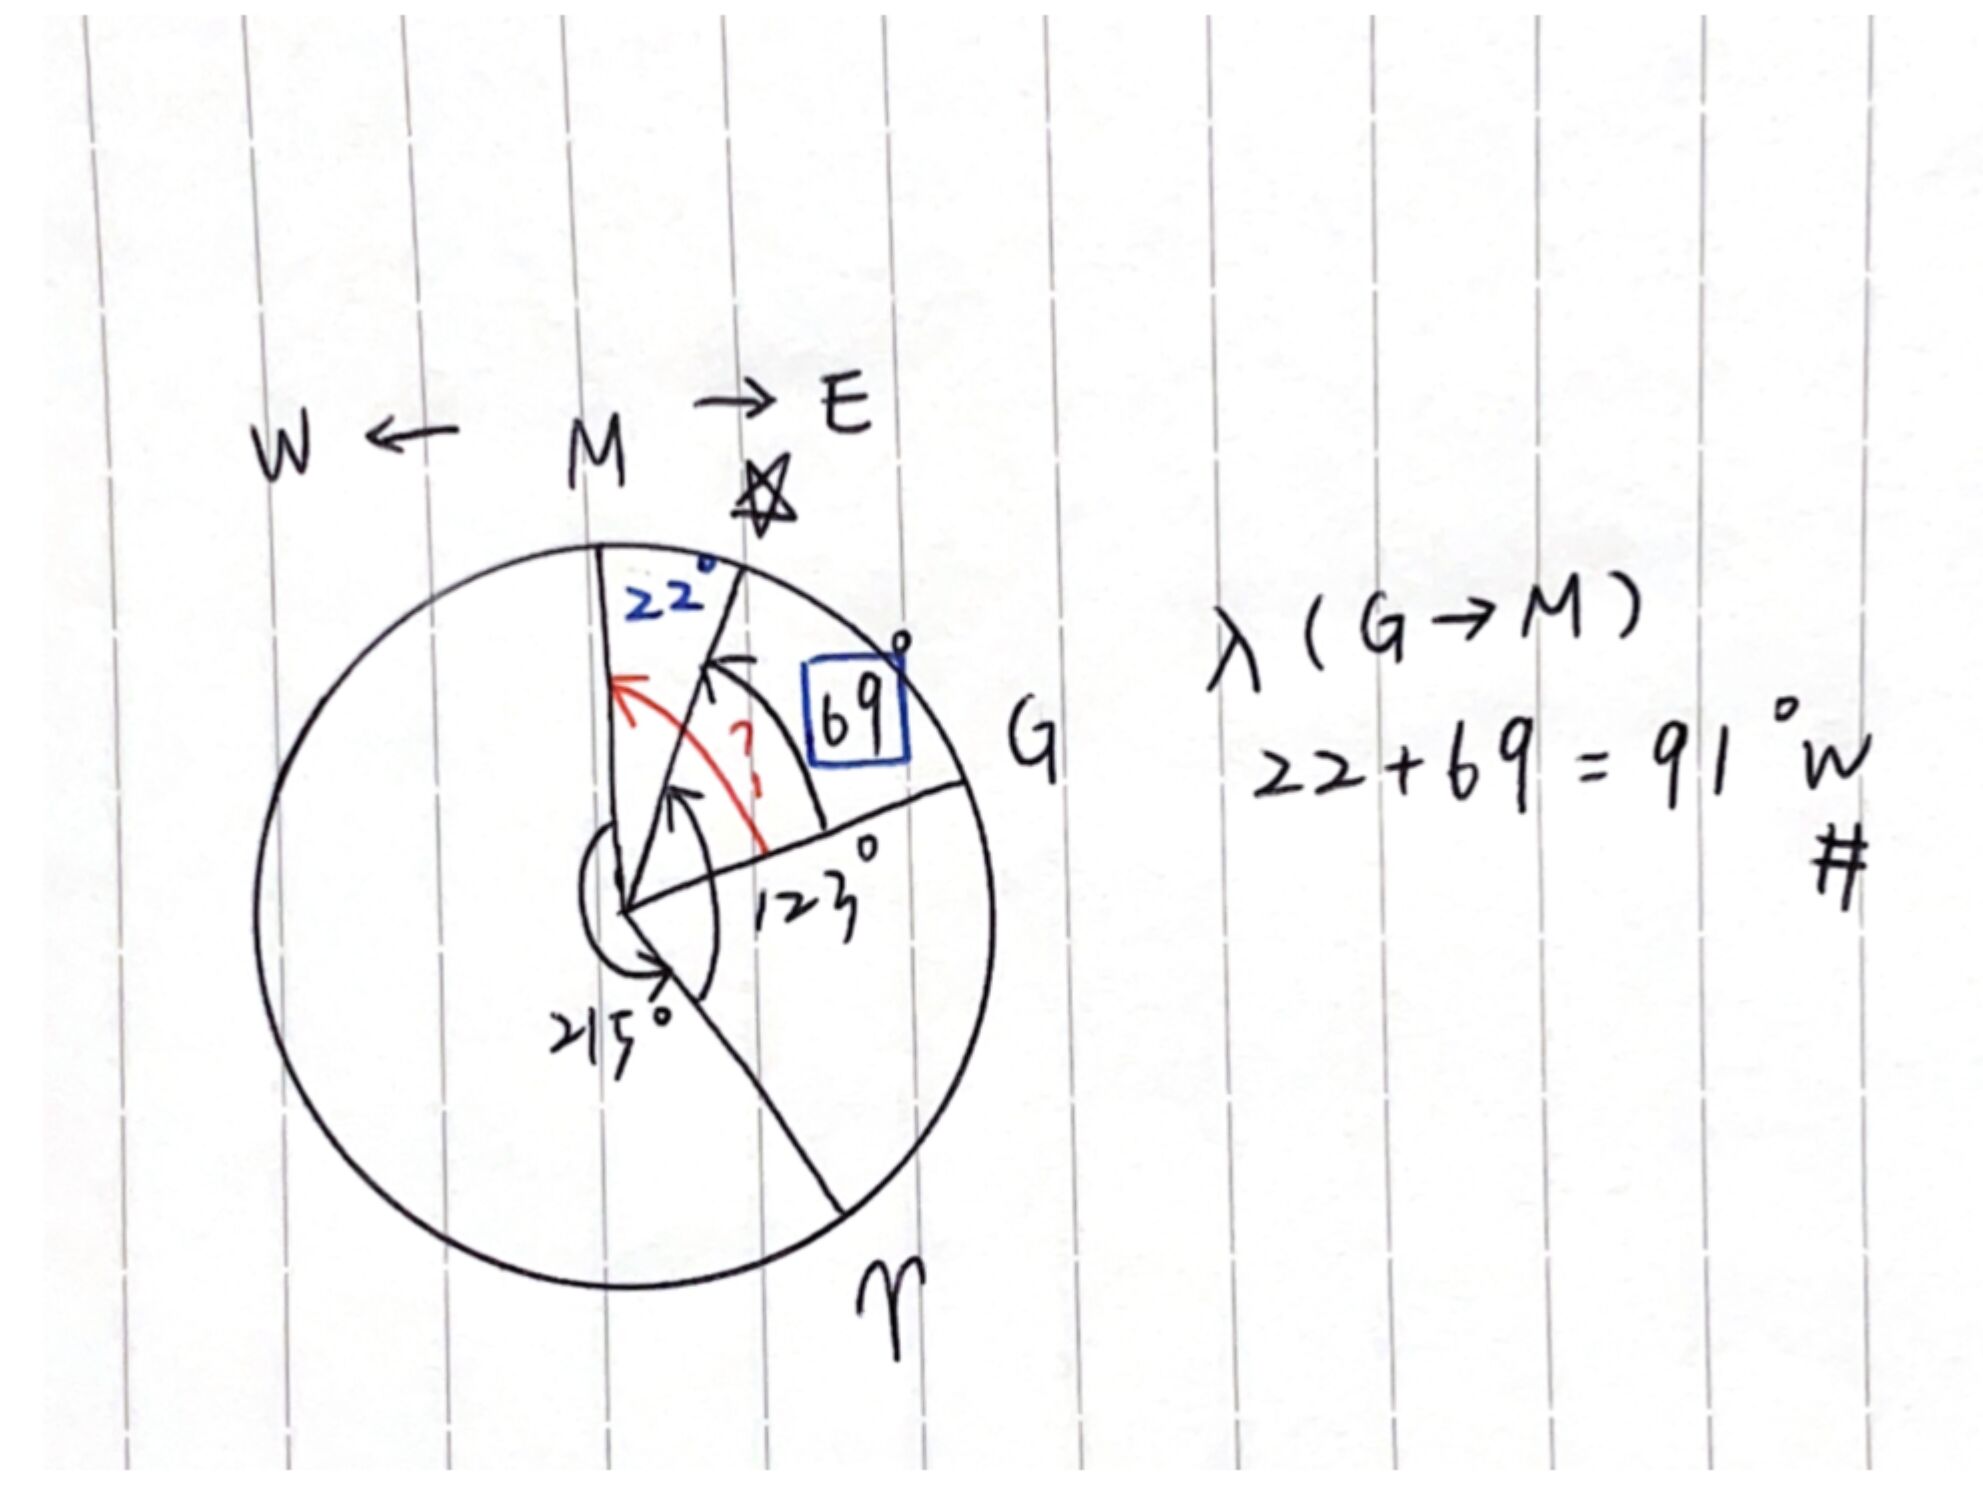 W ← M → E
☆
22°
69°
?
G
123°
215°
♈
λ (G → M)
22 + 69 = 91° W
#